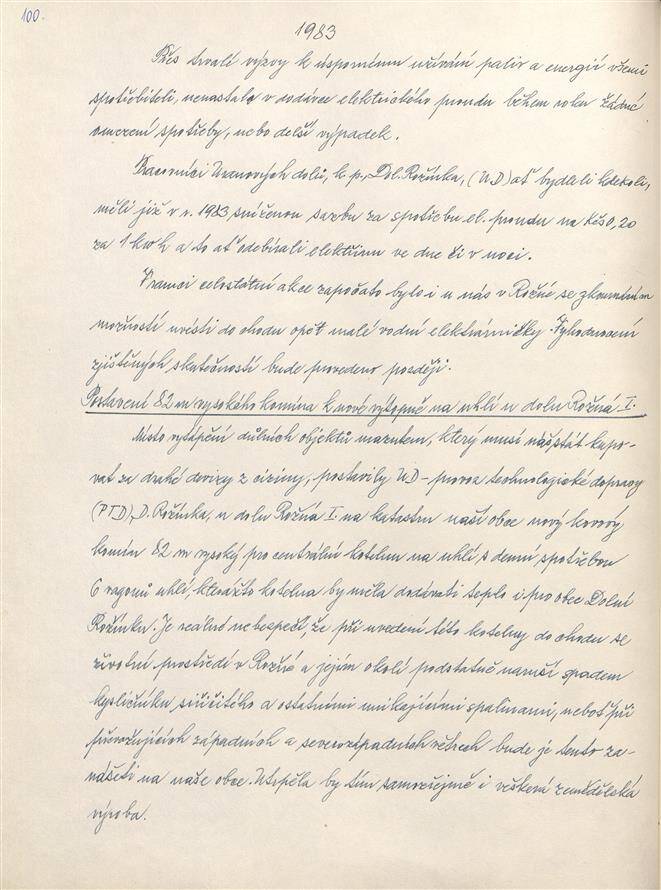 100.
1983
Přes trvalé výzvy k úspornému užívání paliv a energií všemi
spotřebiteli, nenastalo v dodávce elektrického proudu během roku žádné
omezení spotřeby, nebo delší výpadek.
Pracovníci Uranových dolů, k. p., Dol. Rožínka, (UD) ať bydleli kdekoli,
měli již v r. 1983 sníženou sazbu za spotřebu el. proudu na Kčs 0,20
za 1 kWh a to ať odebírali elektřinu ve dne či v noci.
V rámci celostátní akce započato bylo i u nás v Rožné se zkoumáním
možností uvésti do chodu opět malé vodní elektrárničky. Vyhodnocení
zjištěných skutečností bude provedeno později.
Postavení 82 m vysokého komína k nové výtopně na uhlí u dolu Rožná I.
Místo vytápění důlních objektů mazutem, který musí náš stát kupo-
vat za drahé devizy z ciziny, postavily UD - provoz technologické dopravy
(PTD), D. Rožínka, u dolu Rožná I. na katastru naší obce nový kovový
komín 82 m vysoký pro centrální kotelnu na uhlí, s denní spotřebou
6 vagonů uhlí, kterážto kotelna by měla dodávati teplo i pro obec Dolní
Rožínku. Je reálné nebezpečí, že při uvedení této kotelny do chodu se
životní prostředí v Rožné a jejím okolí podstatně naruší spadem
kysličníku siřičitého a ostatními unikajícími spalinami, neboť při
převažujících západních a severozápadních větrech bude je tento za-
nášeti na naše obce. Utrpěla by tím samozřejmě i veškerá zemědělská
výroba.